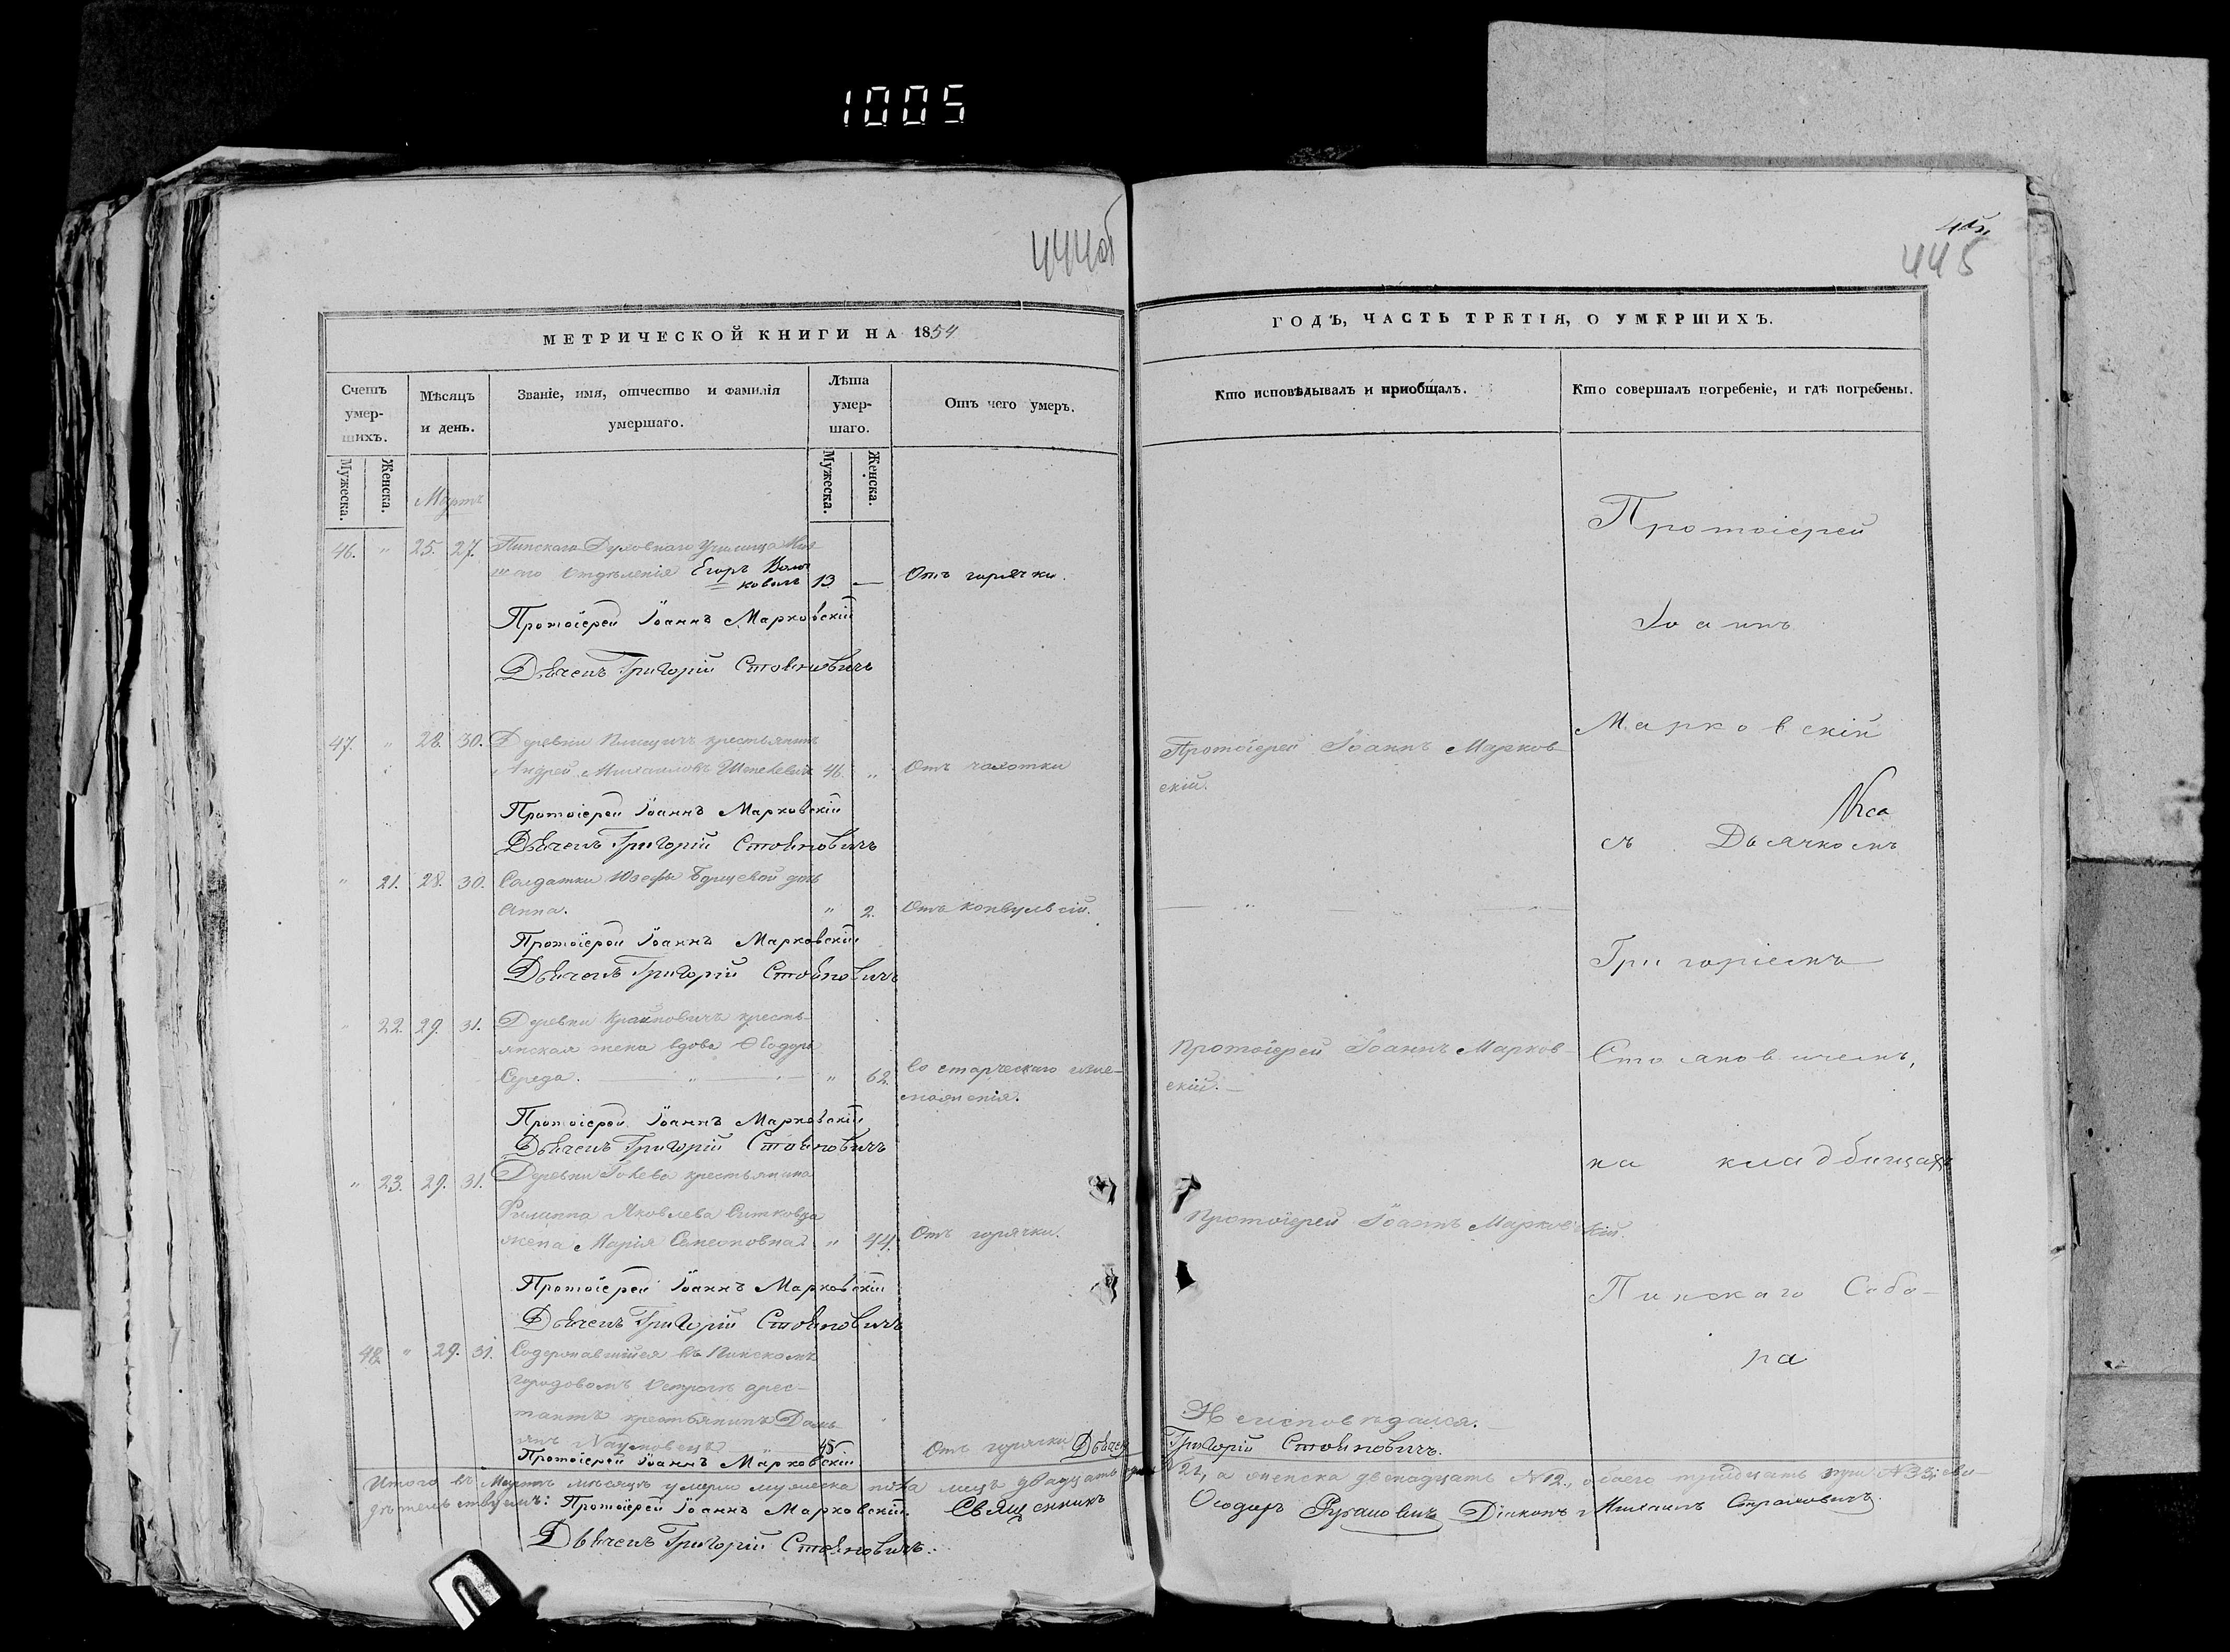 1005
444об
445
МЕТРИЧЕСКОЙ КНИГИ НА 1854
ГОДЪ, ЧАСТЬ ТРЕТІЯ, О УМЕРШИХЪ.
Счетъ умер-
шихъ.
Мѣсяцъ
и день.
Званіе, имя, отчество и фамилія
умершаго.
Лѣта
умер-
шаго.
Отъ чего умеръ.
Кто исповѣдывалъ и приобщалъ.
Кто совершалъ погребеніе, и гдѣ погребены.
Мужеска.
Женска.
Мужеска.
Женска.
Мартъ
46. " 25. 27. Пинскаго Духовнаго Училища
Отдѣленія Егоръ
13 — Отъ горячки.
Протоіерей Іоаннъ Марковскій
Дьячекъ Григорій Стояновичъ
47. " 28. 30. Деревни крестьянинъ
Андрей Михаиловъ 46. " Отъ чахотки
Протоіерей Іоаннъ Марков-
скій.
Протоіерей Іоаннъ Марковскій
Дьячекъ Григорій Стояновичъ
" 21. 28. 30. Солдатки Юзефы дочь
Анна. " 2. Отъ конвульсій.
Протоіерей Іоаннъ Марковскій
Дьячекъ Григорій Стояновичъ
" 22. 29. 31. Деревни Крайновичъ кресть-
янская жена вдова Ѳеодора
Середа. " 62.
Протоіерей Іоаннъ Марков-
скій.
Протоіерей Іоаннъ Марковскій
Дьячекъ Григорій Стояновичъ
" 23. 29. 31. Деревни крестьянина
Филиппа Яковлева
жена Марія Семеоновна. " 44. Отъ горячки.
Протоіерей Іоаннъ Марковскій.
Протоіерей Іоаннъ Марковскій
Дьячекъ Григорій Стояновичъ
48. " 29. 31. Содержавшійся въ Пинскомъ
городовомъ Острогѣ арес-
тантъ крестьянинъ Дамь-
янъ 45 Отъ горячки
Неисповѣдался.
Протоіерей Іоаннъ Марковскій
Дьячекъ Григорій Стояновичъ.
Протоіерей
Іоаннъ
Марковскій
съ Дьячкомъ
Григоріемъ
Стояновичемъ,
на кладбищахъ
Пинскаго Собо-
ра
Итого въ Мартѣ мѣсяцѣ умерло мужеска пола лицъ двадцать 21, а женска двенадцать №12., обаего тридцать три №33; сви-
дѣтельствуемъ: Протоіерей Іоаннъ Марковскій. Священникъ Ѳеодоръ Діаконъ Михаилъ
Дьячекъ Григорій Стояновичъ.